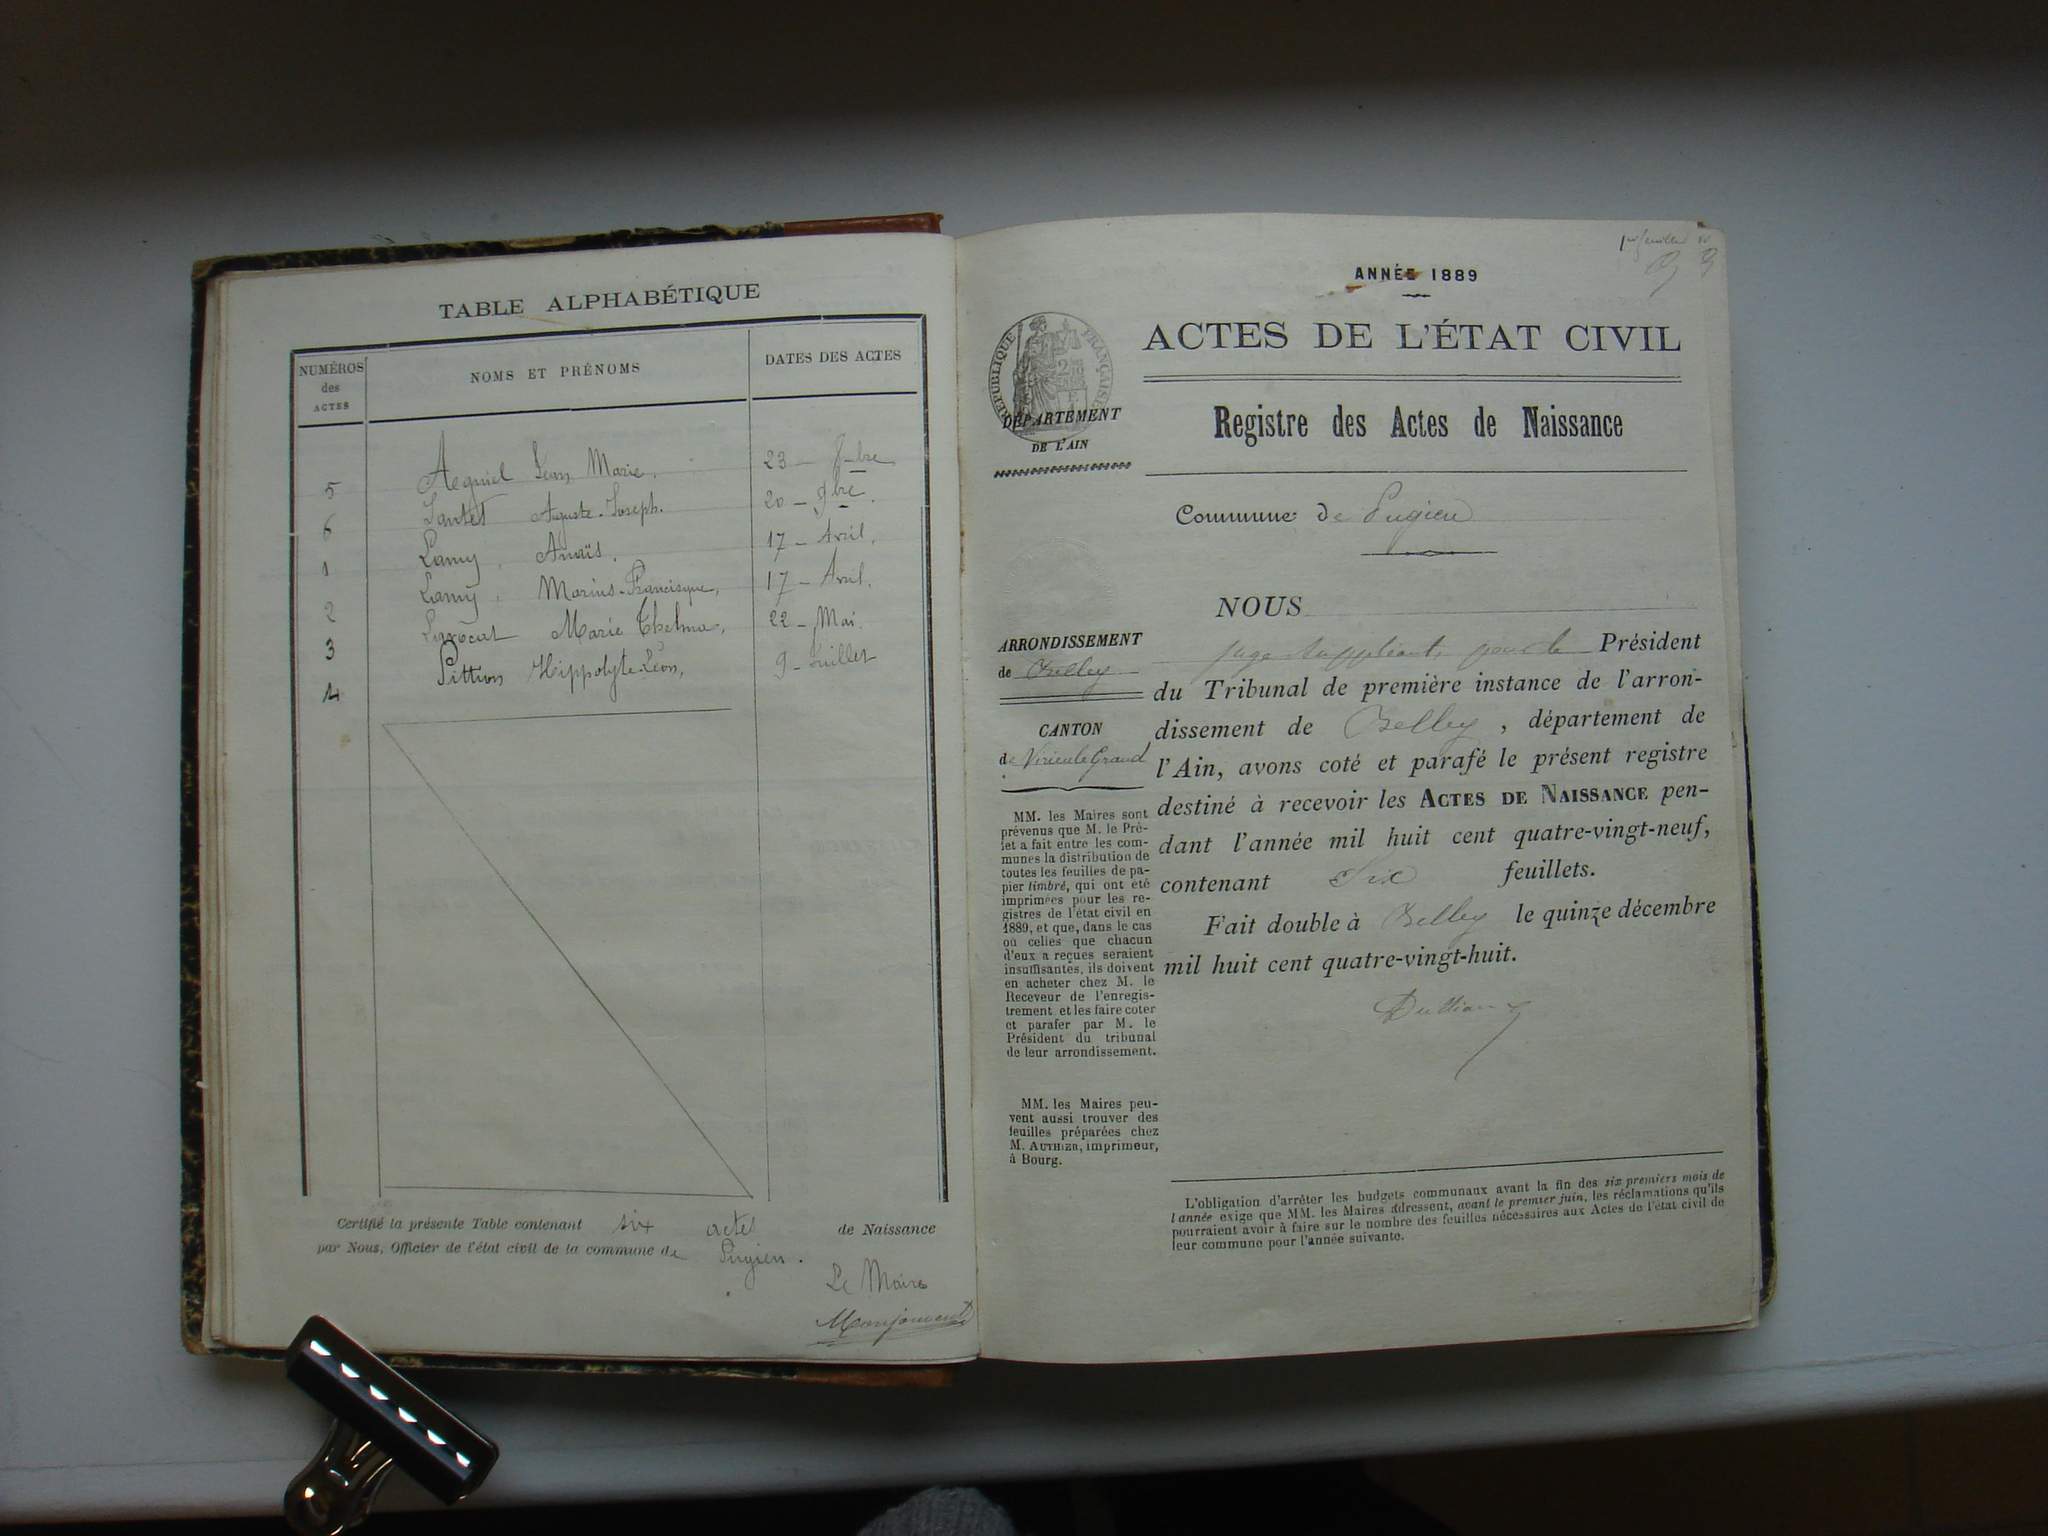 TABLE ALPHABÉTIQUE
NUMÉROS des ACTES
NOMS ET PRÉNOMS
DATES DES ACTES
5 Léon Marie. 23 - bre
6 Jantet Auguste-Joseph. 20 - 9bre.
1 Lamy, Anaïs. 17 - Avril.
2 Lamy, Marius-Francisque, 17 - Avril.
3 Marie Thelma, 22 - Mai.
4 Pittion Hippolyte-Léon, 9 - Juillet
Certifié la présente Table contenant six actes de Naissance
par Nous, Officier de l'état civil de la commune de Pugieu.
Le Maire
1er feuillet
ANNÉE 1889
RÉPUBLIQUE FRANÇAISE
ACTES DE L'ÉTAT CIVIL
DÉPARTEMENT
DE L'AIN
Registre des Actes de Naissance
Commune de Pugieu
ARRONDISSEMENT
de Belley
CANTON
de Virieu le Grand
MM. les Maires sont
prévenus que M. le Pré-
fet a fait entre les com-
munes la distribution de
toutes les feuilles de pa-
pier timbré, qui ont été
imprimées pour les re-
gistres de l'état civil en
1889, et que, dans le cas
où celles que chacun
d'eux a reçues seraient
insuffisantes, ils doivent
en acheter chez M. le
Receveur de l'enregis-
trement et les faire coter
et parafer par M. le
Président du tribunal
de leur arrondissement.
MM. les Maires peu-
vent aussi trouver des
feuilles préparées chez
M. AUTHIER, imprimeur,
à Bourg.
NOUS
juge suppléant, pour le Président
du Tribunal de première instance de l'arron-
dissement de Belley, département de
l'Ain, avons coté et parafé le présent registre
destiné à recevoir les ACTES DE NAISSANCE pen-
dant l'année mil huit cent quatre-vingt-neuf,
contenant Six feuillets.
Fait double à Belley le quinze décembre
mil huit cent quatre-vingt-huit.
L'obligation d'arrêter les budgets communaux avant la fin des six premiers mois de
l'année exige que MM. les Maires adressent, avant le premier juin, les réclamations qu'ils
pourraient avoir à faire sur le nombre des feuilles nécessaires aux Actes de l'état civil de
leur commune pour l'année suivante.